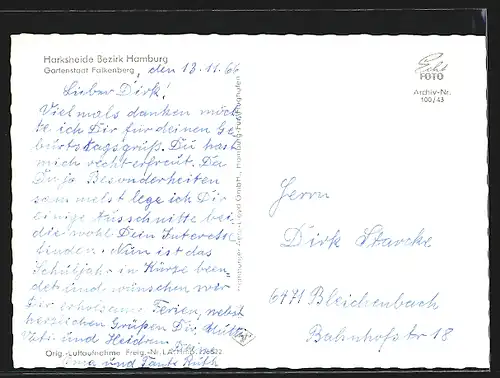 Harksheide Bezirk Hamburg
Gartenstadt Falkenberg, den 13.11.66
Lieber Dirk!
Vielmals danken möch
te ich Dir für deinen Ge
burtstagsgruß. Du hast
mich recht erfreut. Da
Du ja Besonderheiten
sammelst lege ich Dir
einige Ausschnitte bei,
die wohl Dein Interesse
finden. Nun ist das
Schuljahr in Kürze been
det und wünschen wir
Dir erholsame Ferien, nebst
herzlichen Grüßen Dir, Mutti
Vati und Heidrun
Oma und Tante Ruth
Orig.-Luftaufnahme Freig.-Nr. L.A.
Echt
FOTO
Archiv-Nr.
100/43
Herrn
Dirk Starcke
6471 Bleichenbach
Bahnhofstr 18